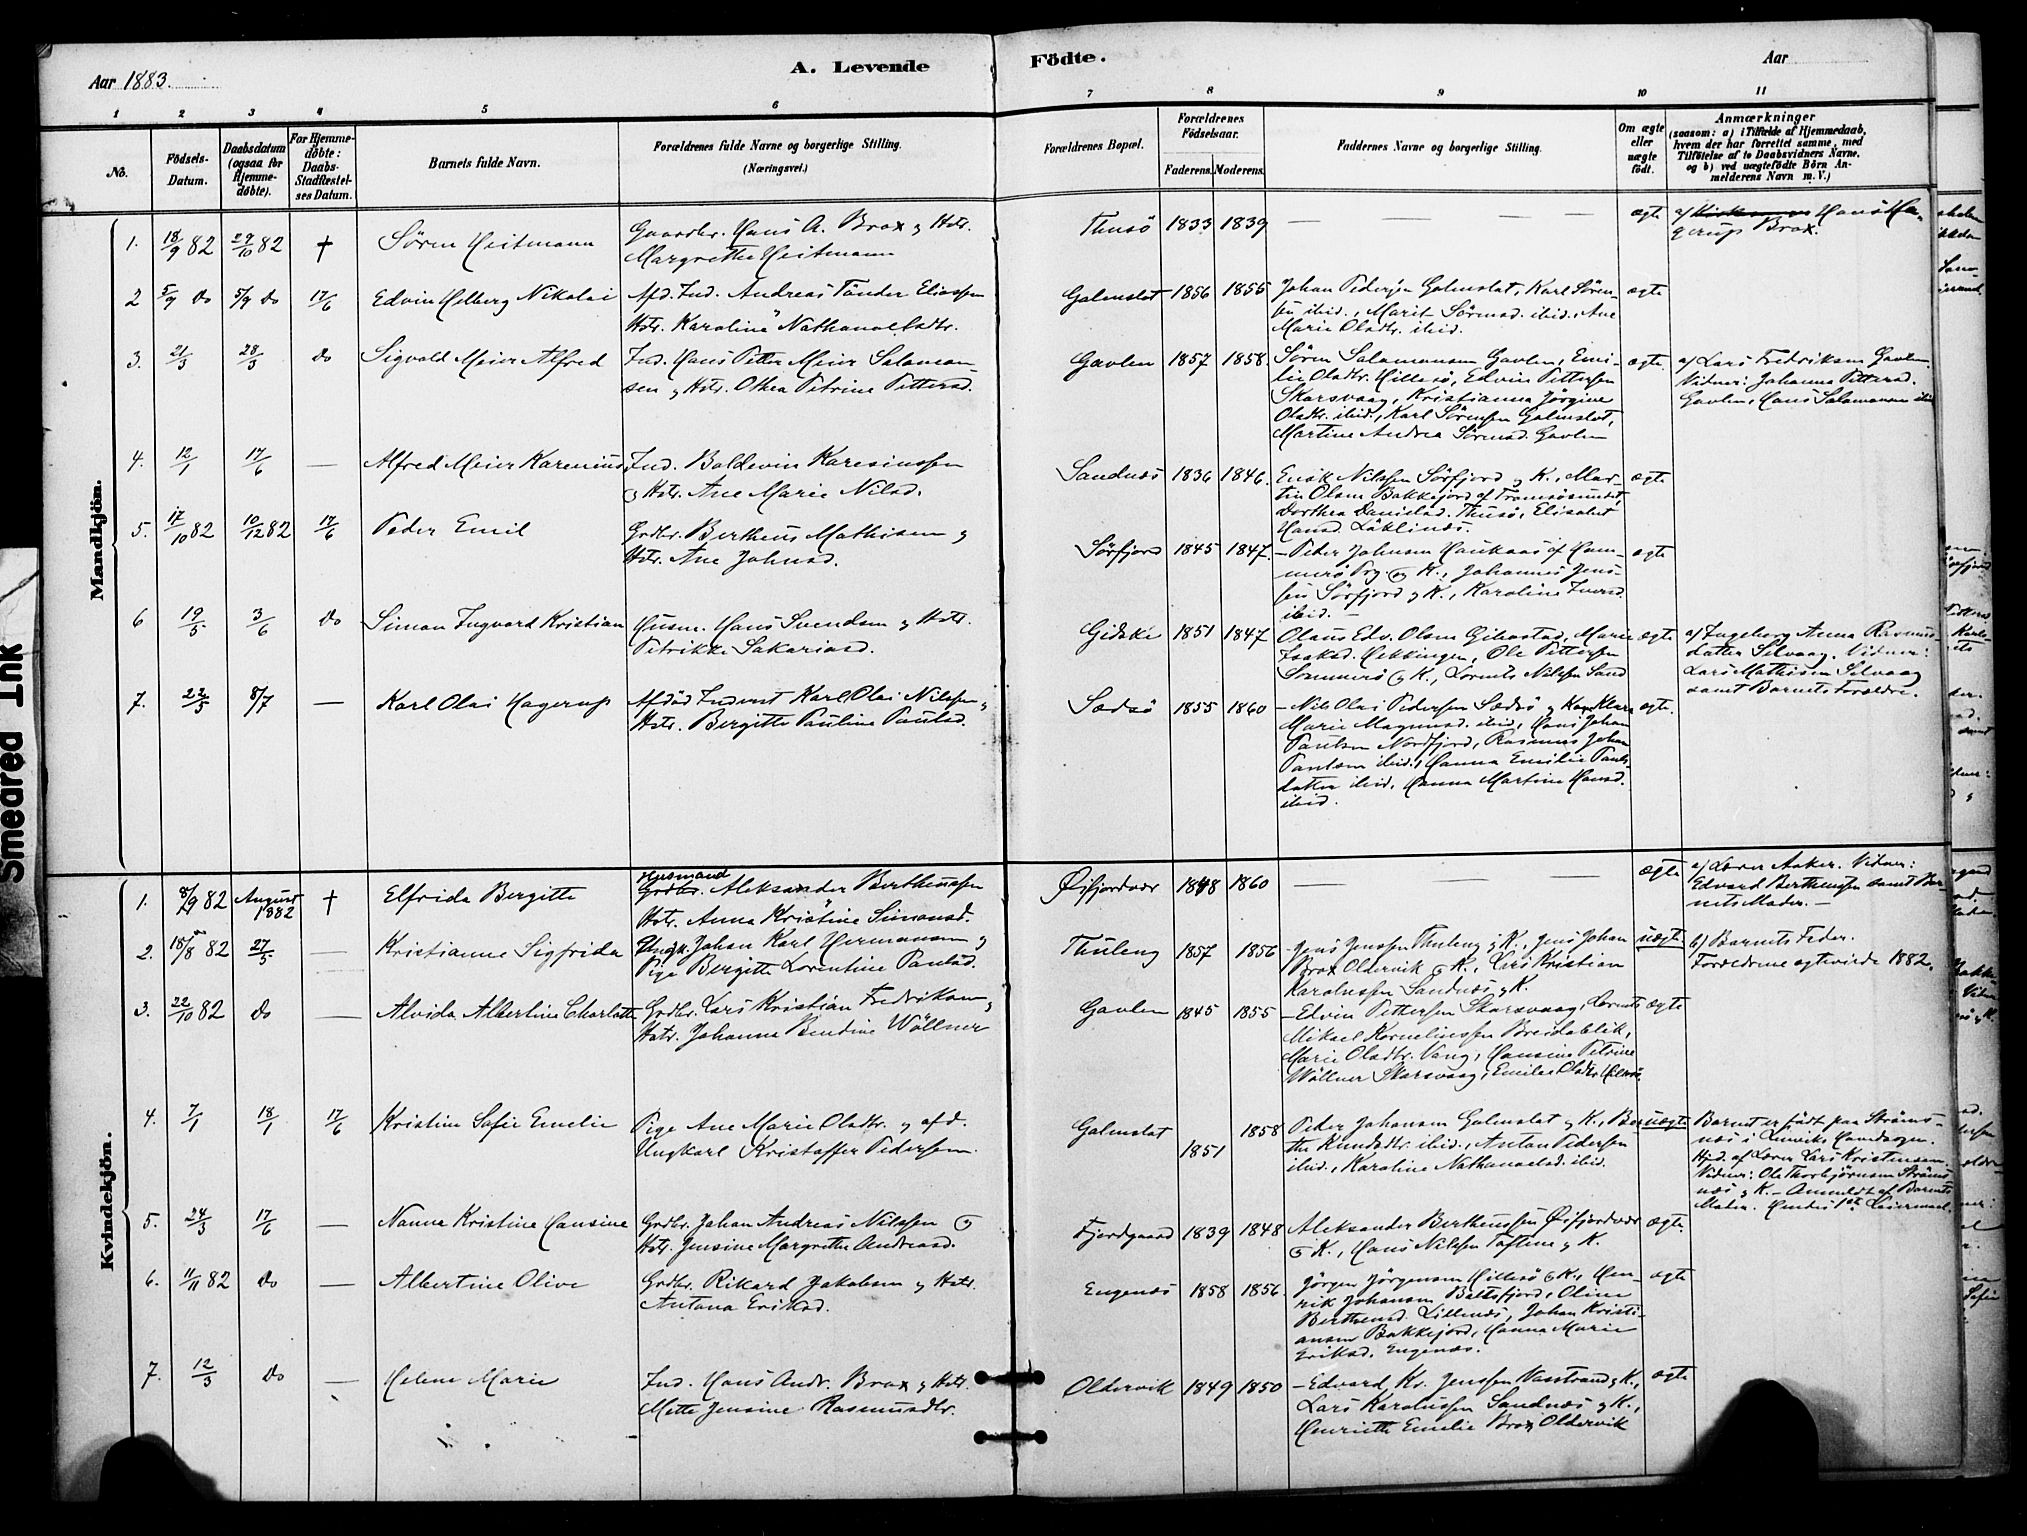 Aar 1883.
A. Levende
Födte.
Aar
1 2 3 4 5 6 7 8 9 10 11
No.
Födsels-
Datum.
Daabsdatum
(ogsaa for
Hjemme-
döbte).
For Hjemme-
döbte:
Daabs-
Stadfæstel-
ses Datum.
Barnets fulde Navn.
Forældrenes fulde Navne og borgerlige Stilling.
(Næringsvei.)
Forældrenes Bopæl.
Forældrenes
Födselsaar.
Faderens. Moderens.
Faddernes Navne og borgerlige Stilling.
Om ægte
eller
uægte
födt.
Anmærkninger
(saasom: a) i Tilfælde af Hjemmedaab,
hvem der har forrettet samme, med
Tilföielse af to Daabsvidners Navne,
og b) ved uægtefödte Börn An-
melderens Navn m. V.)
Mandkjön.
1. 18/9 82 29/10 82 † Sören Heitmann
Gaardbr. Hans A. Brox og Hstr.
Margrethe Heitmann
Thusö 1833 1839 — — — — ægte
a/ Hans Ha-
gerup Brox.
2 5/9 do 5/9 do 17/6 Edvin Helberg Nikolai
Afd. Ind. Andreas Tönder Eliassen
Hstr. Karolina Nathanaelsdtr.
Galmslat 1856 1855
Johan Pedersen Galmslat, Karl Sören-
sen ibid., Marit Sörensd. ibid., Ane
Marie Olsdtr. ibid.
ægte
3. 21/3 28/3 do Sigvald Meier Alfred
Ind. Hans Petter Meier Salamon-
sen og Hstr. Othea Petrine Pettersd.
Gavlen 1857 1858.
Sören Salamonsen Gavlen, Emi-
lie Olsdtr. Hillesö, Edvin Pettersen
Skarsvaag, Kristianna Jörgine
Olsdtr. ibid., Karl Sörensen Galmslat,
Martine Andrea Sörensd. Gavlen
ægte.
a/ Lars Fredriksen Gavlen.
Vidner: Johanna Pettersd.
Gavlen, Hans Salamonsen ibid
4. 12/1 17/6 — Alfred Meier Karenius
Ind. Baldevin Karesiussen
og Hstr. Ane Marie Nilsd.
Sandnæs 1836 1846.
Enok Nilssen Sörfjord og K., Mar-
tin Olsen Bakkejord af Tromsösundet,
Dorthea Danielsd. Thusö, Elisabet
Hansd. Löklinæs.
ægte
5. 17/10 82 10/12 82 17/6 Peder Emil
Grdbr. Bertheus Mathisen og
Hstr. Ane Johnsd.
Sörfjord 1845 1847.
– Peder Johnsen Haukaas af Ham-
merö Prg. og K., Johannes Jens-
sen Sörfjord og K., Karoline Iversd.
ibid. —
ægte
6 19/5 3/6 do Simon Ingvard Kristian
Husm. Hans Svendsen og Hstr.
Petrikke Sakariasd.
Gidski 1851 1847
Olaus Edv. Olsen Gibostad, Marie
Isaksd. Hekkingen, Ole Pettersen
Sommerö og K., Lorents Nilssen Sand
ægte
a/ Ingeborg Anna Rasmus-
datter Selvaag. Vidner:
Lars Mathisen Selvaag
samt Barnets Forældre.
7. 22/5 8/7 — Karl Olai Hagerup
Afdöd Inderst Karl Olai Nilssen og
Hstr. Bergitte Pauline Paulsd.
Sædsö 1855 1860
– Nils Olai Pedersen Sædsö og Klara
Marie Magnusd. ibid, Hans Johan
Paulsen Nordfjord, Rasmus Johan
Paulsen ibid., Hanna Emilie Pauls-
datter ibid, Hanna Martine Hansd.
ibid.
ægte.
Kvindekjön.
1. 8/7 82 August
1882 † Elfrida Bergitte
Husmand
Grdbr. Aleksander Bertheussen
Hstr. Anna Kristine Simonsd.
Öifjordvær 1848 1860 — — — ægte
a/ Lærer Aaker. Vidner:
Edvard Bertheussen samt Bar-
nets Moder. —
2. 18/8 82 27/5 — Kristianne Sigfrida
Ungk. Johan Karl Hermansen og
Pige Bergitte Lorentine Paulsd.
Thuleng 1857 1856
Jens Jenssen Thuleng og K., Jens Johan
Brox Oldervik og K., Lars Kristian
Karolussen Sandnæs og K.
uægte
b/ Barnets Fader.
Forældrene ægteviede 1882.
3. 22/10 82 do — Alvida Albertine Charlotte
Grdbr. Lars Kristian Fredriksen og
Hstr. Johanna Bendine Wöllner
Gavlen 1845 1855
– Edvin Pettersen Skarsvaag, Lorents
Mikael Korneliussen Breidablik,
Marie Olsdtr. Vang, Hansine Petrine
Wöllner Skarsvaag, Emilie Olsdtr Hillesö.
ægte
4. 7/1 18/1 17/6 Kristine Sofie Emelie
Pige Ane Marie Olsdtr. og afd.
Ungkarl Kristoffer Pedersen.
Galmslat 1851 1858
Peder Johansen Galmslat og K., Ber-
the Knudsdtr. ibid., Anton Pedersen
ibid., Karoline Nathanaelsd. ibid.
uægte
Barnet er födt paa Ströms-
næs i Lenviks Hovedsogn.
Hjd. af Lærer Lars Kristensen.
Vidner: Ole Thorbjörnsen Ströms-
næs og K. – Anmeldt af Barnets
Moder. Hendes 1ste Leiermaal.
5. 24/3 17/6 — Nanna Kristine Hansine
Grdbr. Johan Andreas Nilssen og
Hstr. Jensine Margrethe Andreasd.
Fjordgaard 1839 1848
Aleksander Bertheussen Öifjordvær
og K., Hans Nilssen Toftene og K.
ægte.
6. 11/11 82 do — Albertine Olive
Grdbr. Rikard Jakobsen og Hstr.
Antona Eriksd.
Engenæs 1858 1856.
Jörgen Jörgensen Hillesö og K., Hen-
rik Johansen Baltsfjord, Oline
Bertheusd. Lillenæs, Johan Kristi-
ansen Bakkejord, Hanna Marie
Eriksd. Engenæs.
ægte
7. 12/3 do — Helene Marie
Ind. Hans Andr. Brox og Hstr.
Mette Jensine Rasmusdtr.
Oldervik 1849 1850
– Edvard Kr. Jenssen Vasstrand og K.,
Lars Karolussen Sandnæs og K.,
Henriette Emelie Brox Oldervik
ægte
Smeared Ink